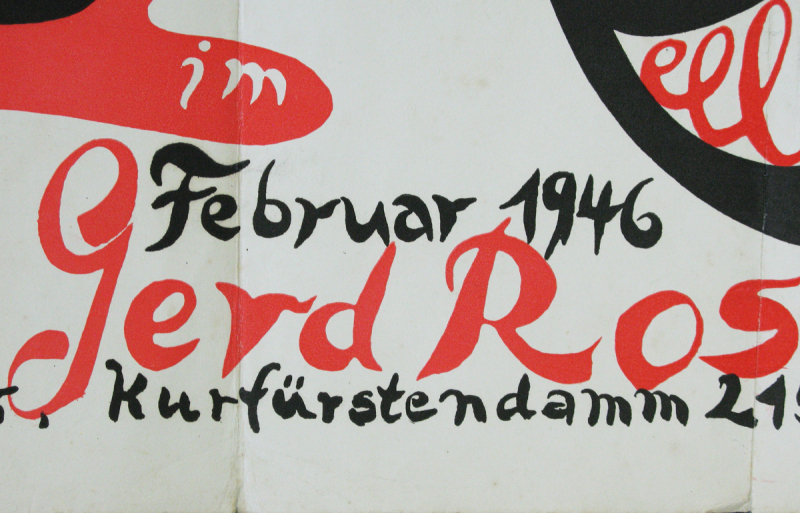 im
ell
Februar 1946
Gerd Ros
Kurfürstendamm 21